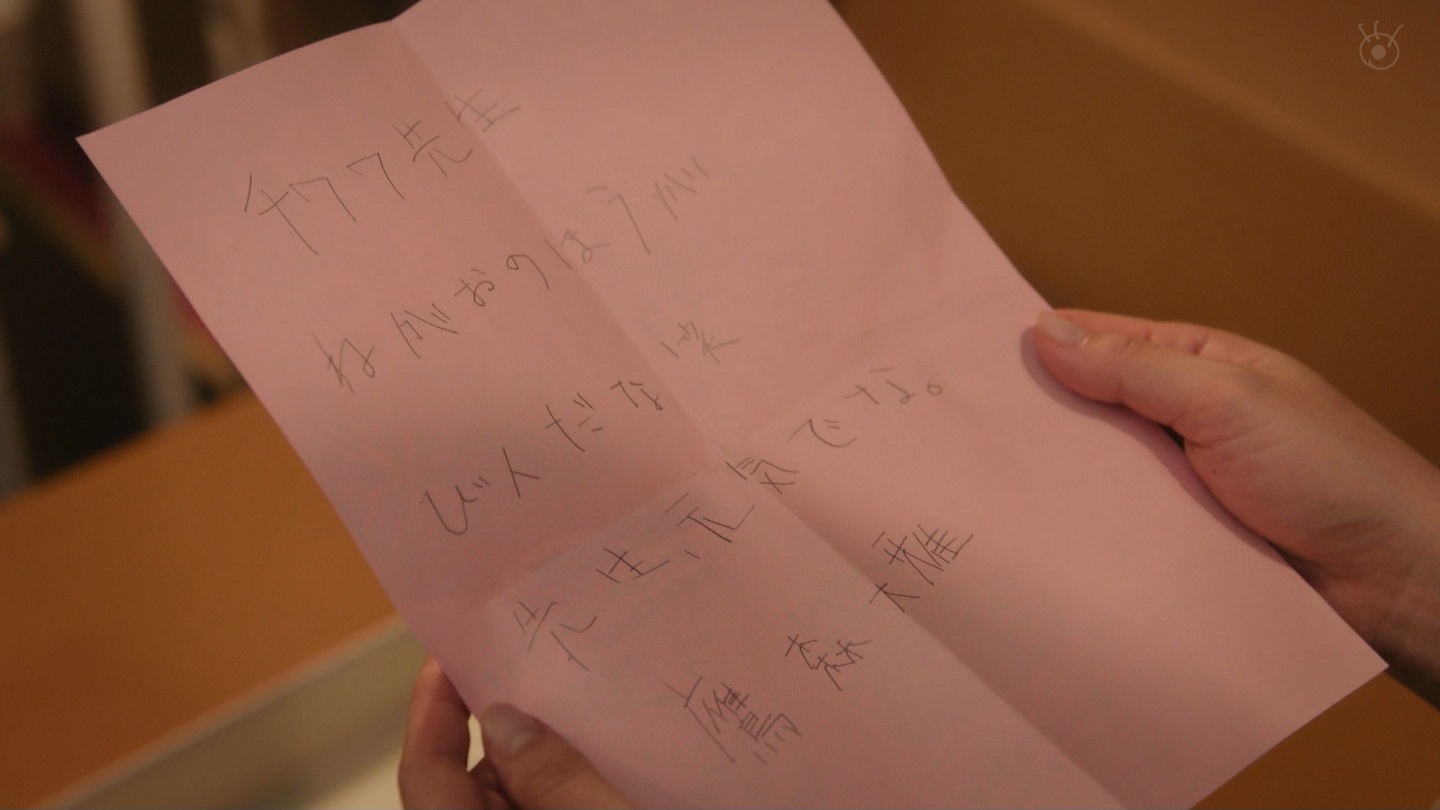 チワワ先生
ねがおのほうが
び人だな 笑
先生、元気でな。
鷹森 大雅